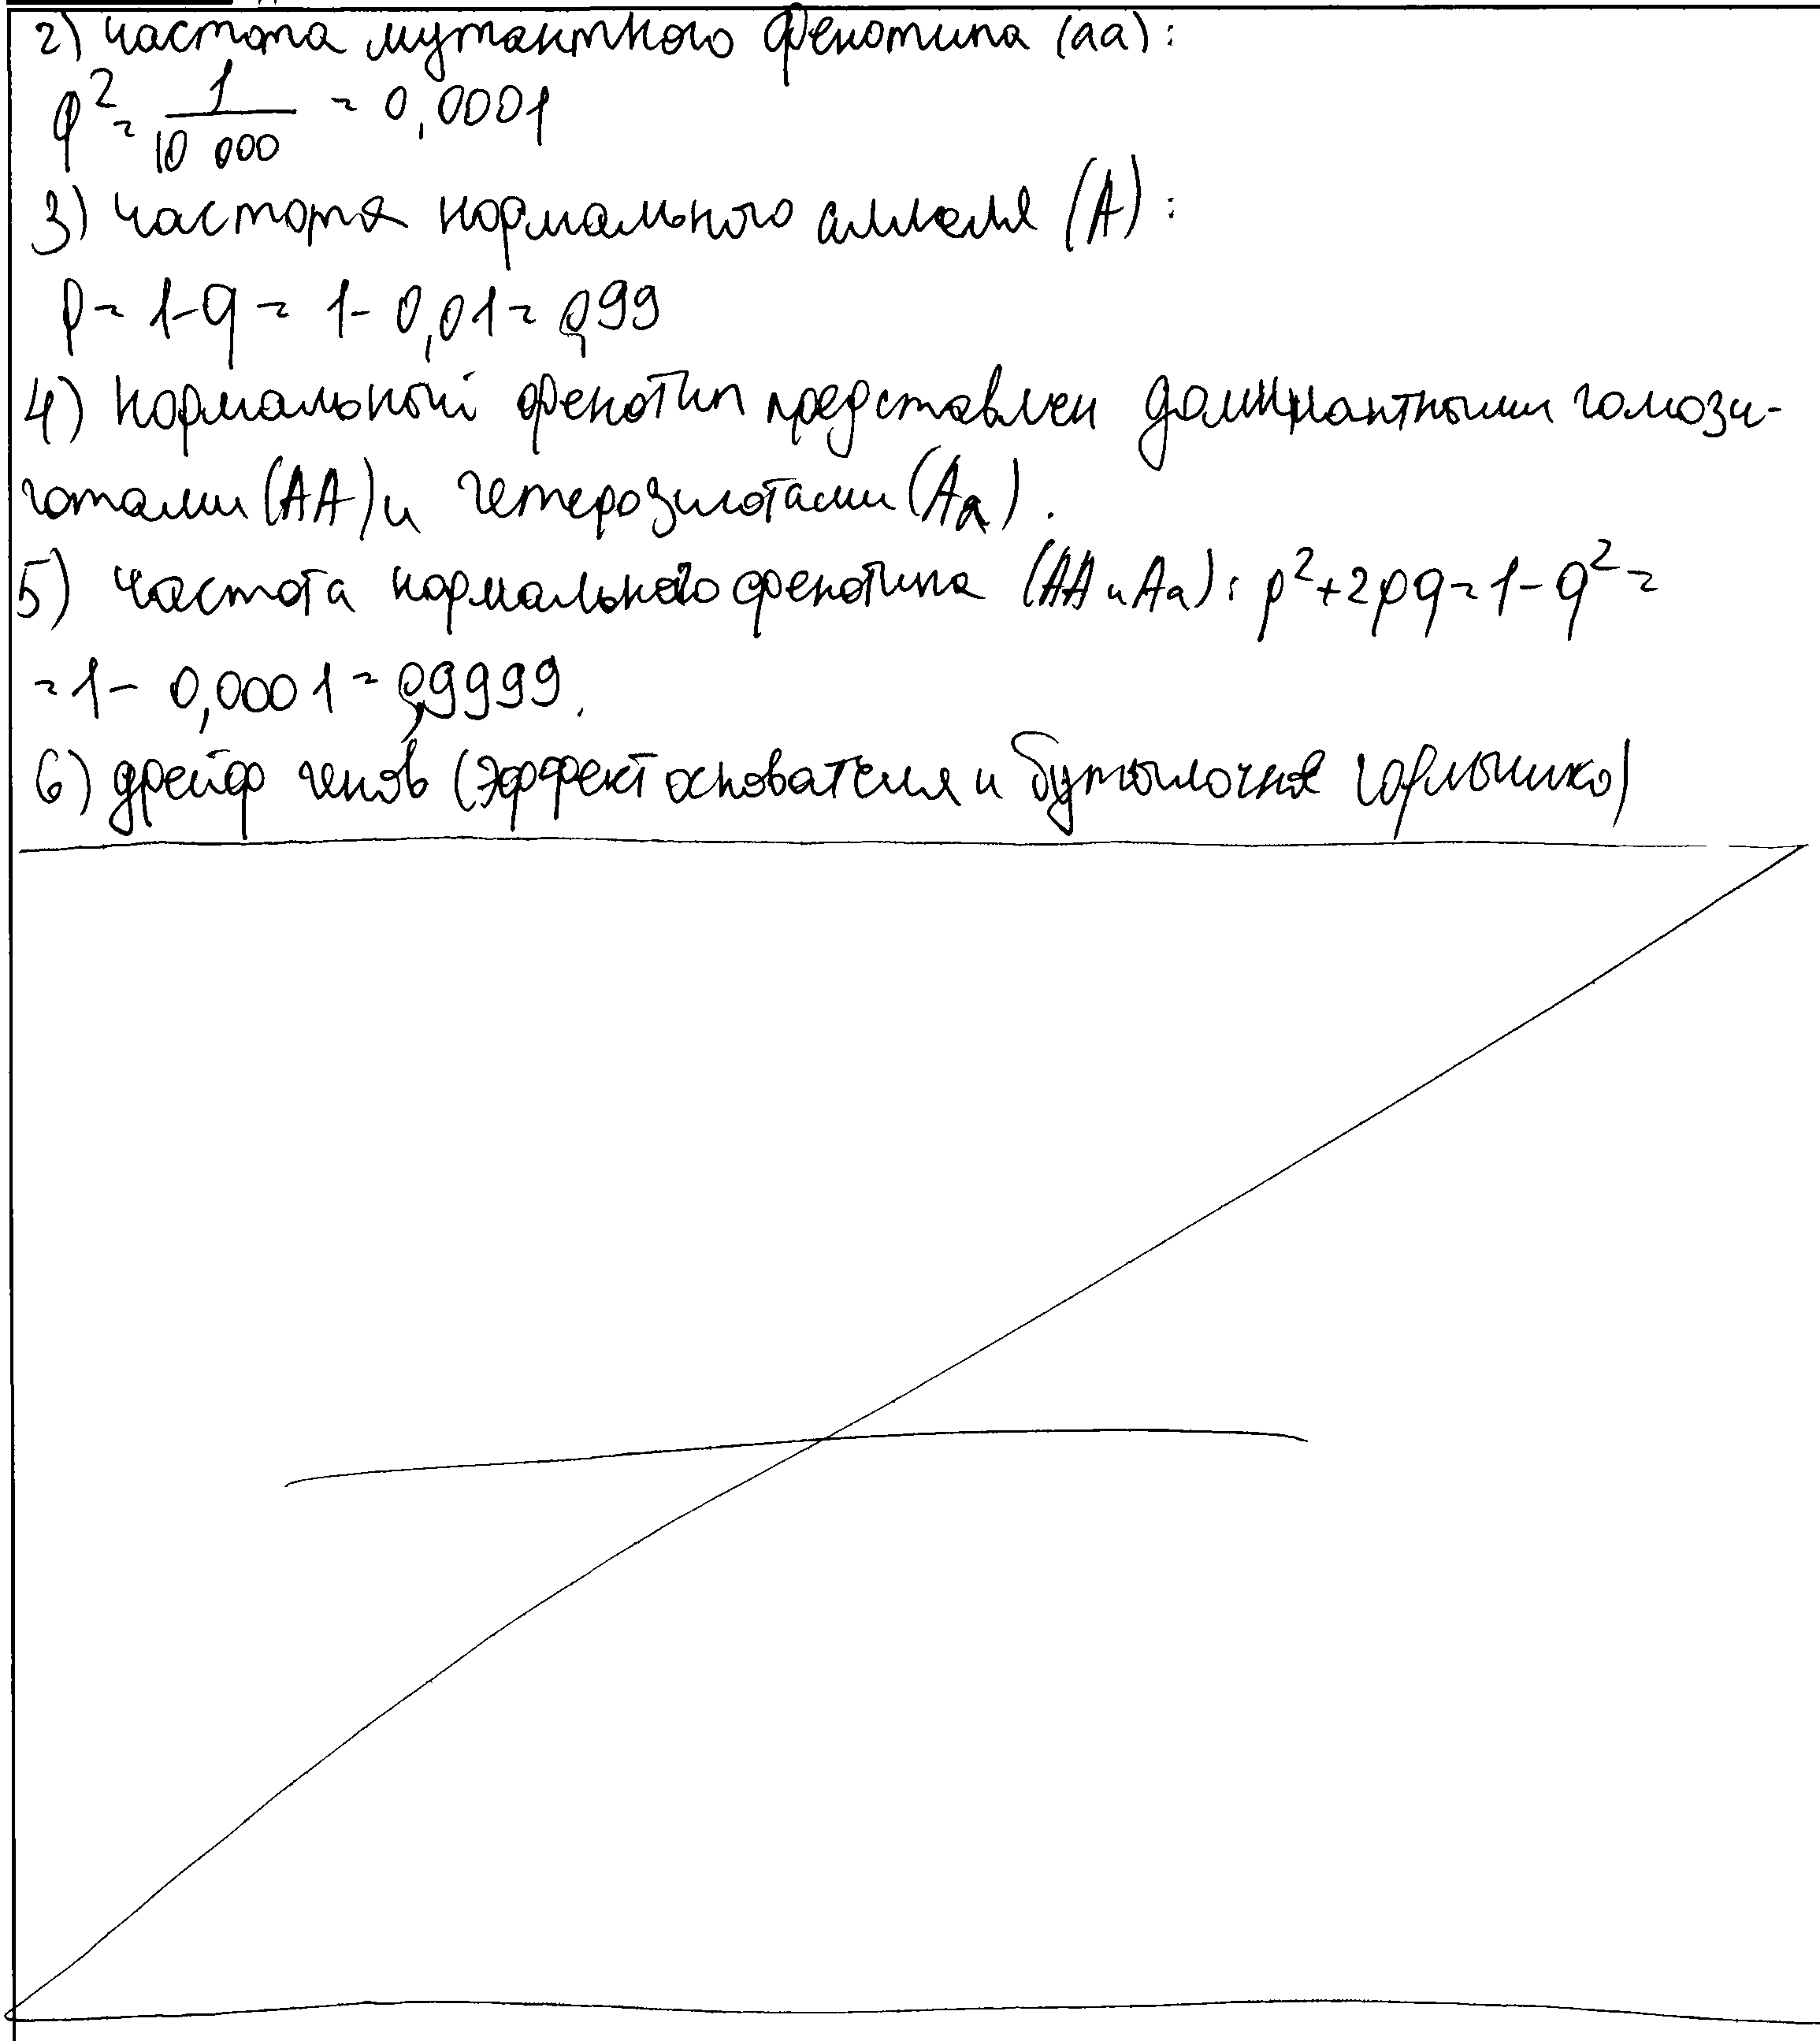 2) частота мутантного фенотипа (аа):
q² = 1/10 000 = 0,0001
3) частота нормального аллеля (А):
p = 1-q = 1- 0,01 = 0,99
4) нормальный фенотип представлен доминантными гомози-
готами (АА) и гетерозиготами (Аа).
5) частота нормального фенотипа (АА и Аа): p²+2pq=1-q²=
=1- 0,0001 = 0,9999.
6) дрейф генов (эффект основателя и бутылочное горлышко)